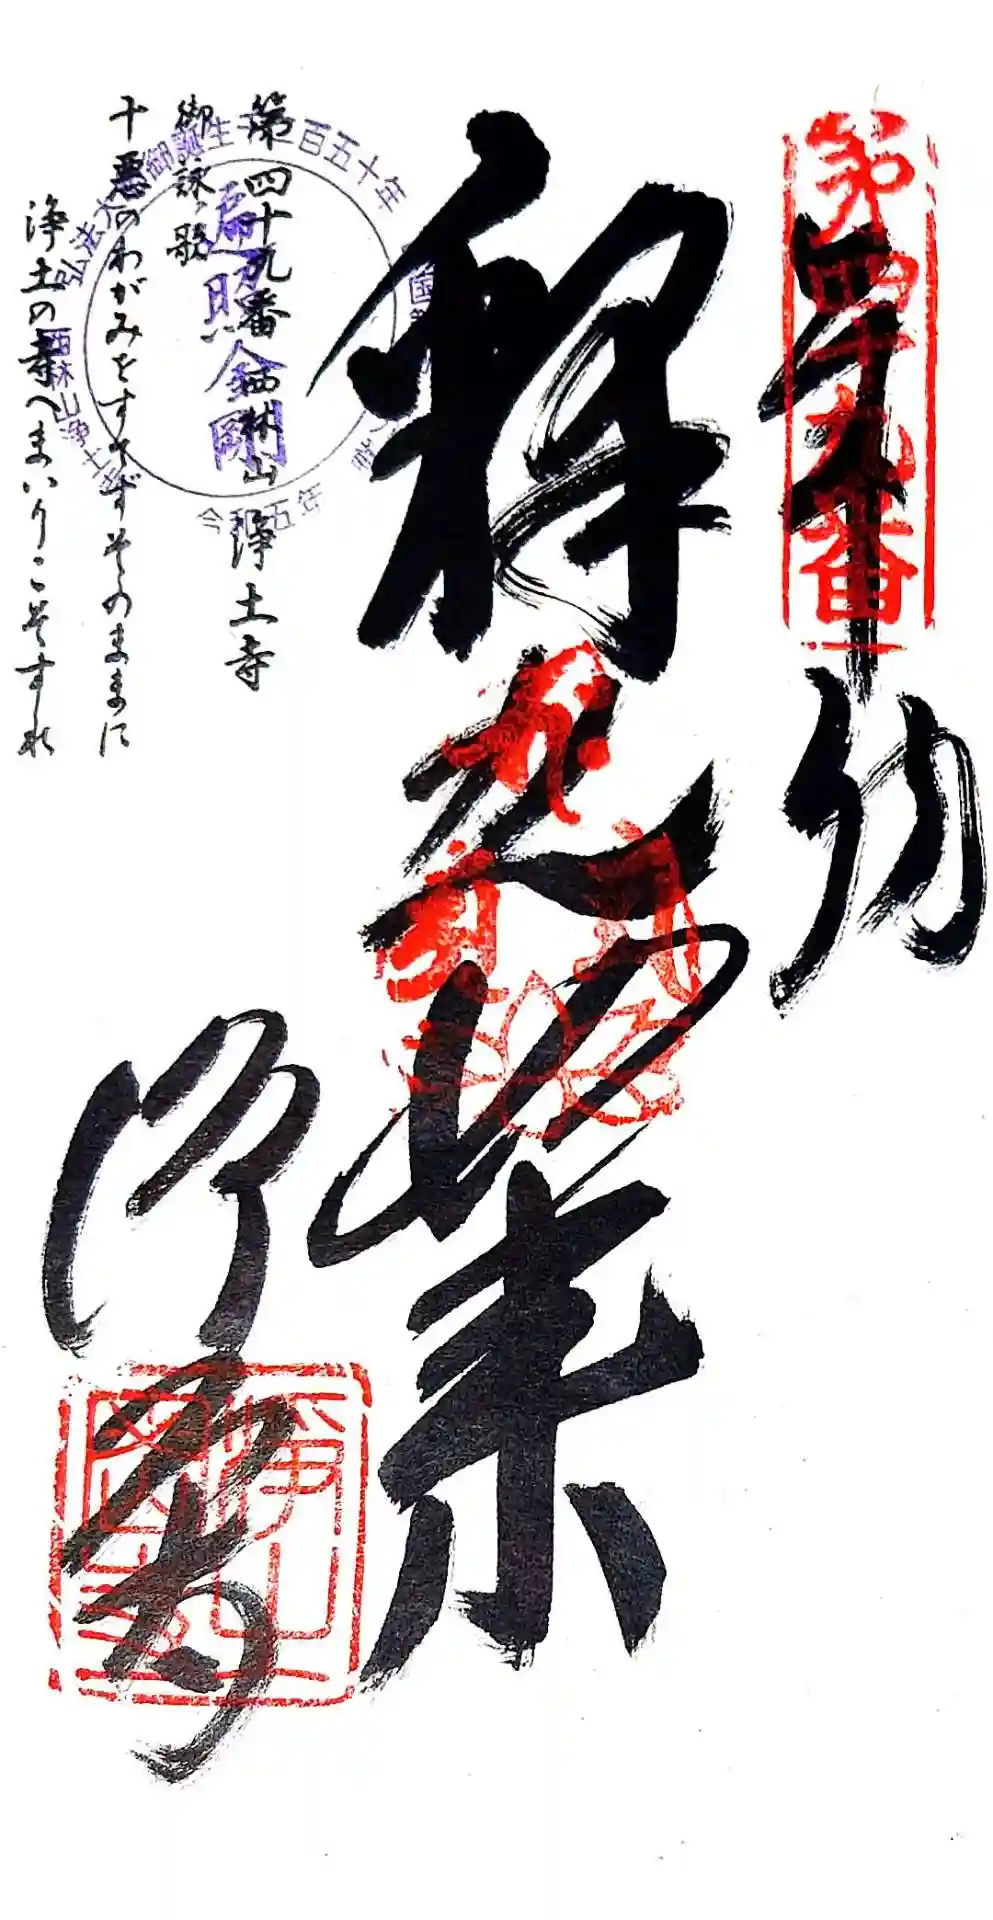 第四十九番
奉納
釈迦如来
浄土寺
第四十九番 西林山 浄土寺
御詠歌
十悪のわがみをすてずそのままに
浄土の寺へまいりこそすれ
遍照金剛
弘法大師御誕生千二百五十年
令和五年